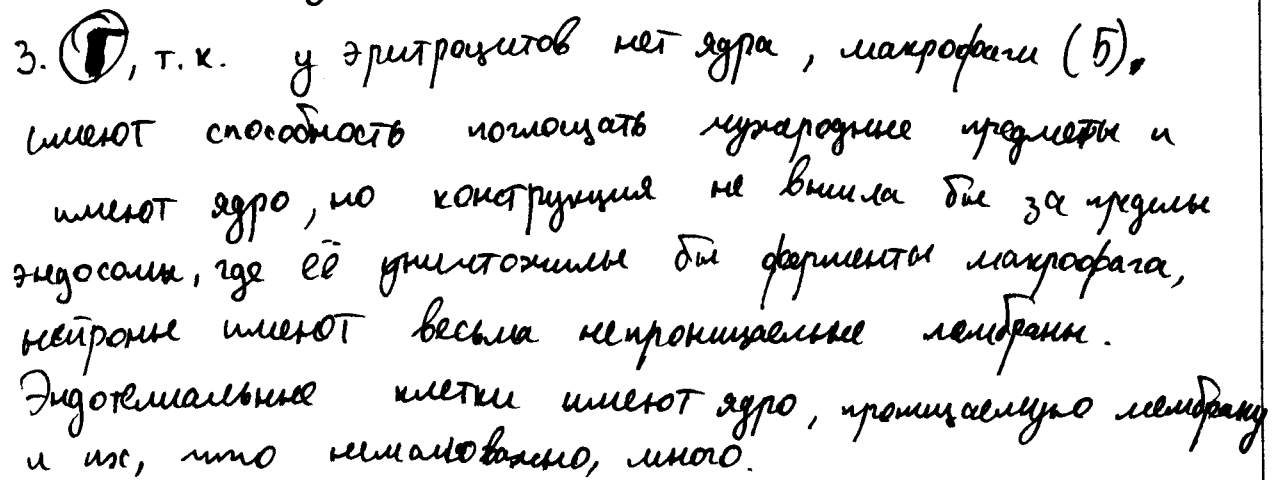 3. Г, т.к. у эритроцитов нет ядра, макрофаги (Б)
имеют способность поглощать чужародные предметы и
имеют ядро, но конструкция не вышла бы за пределы
эндосомы, где её уничтожили бы ферменты макрофага,
нейроны имеют весьма непроницаемые мембраны.
Эндотелиальные клетки имеют ядро, проницаемую мембрану
и их, что немаловажно, много.